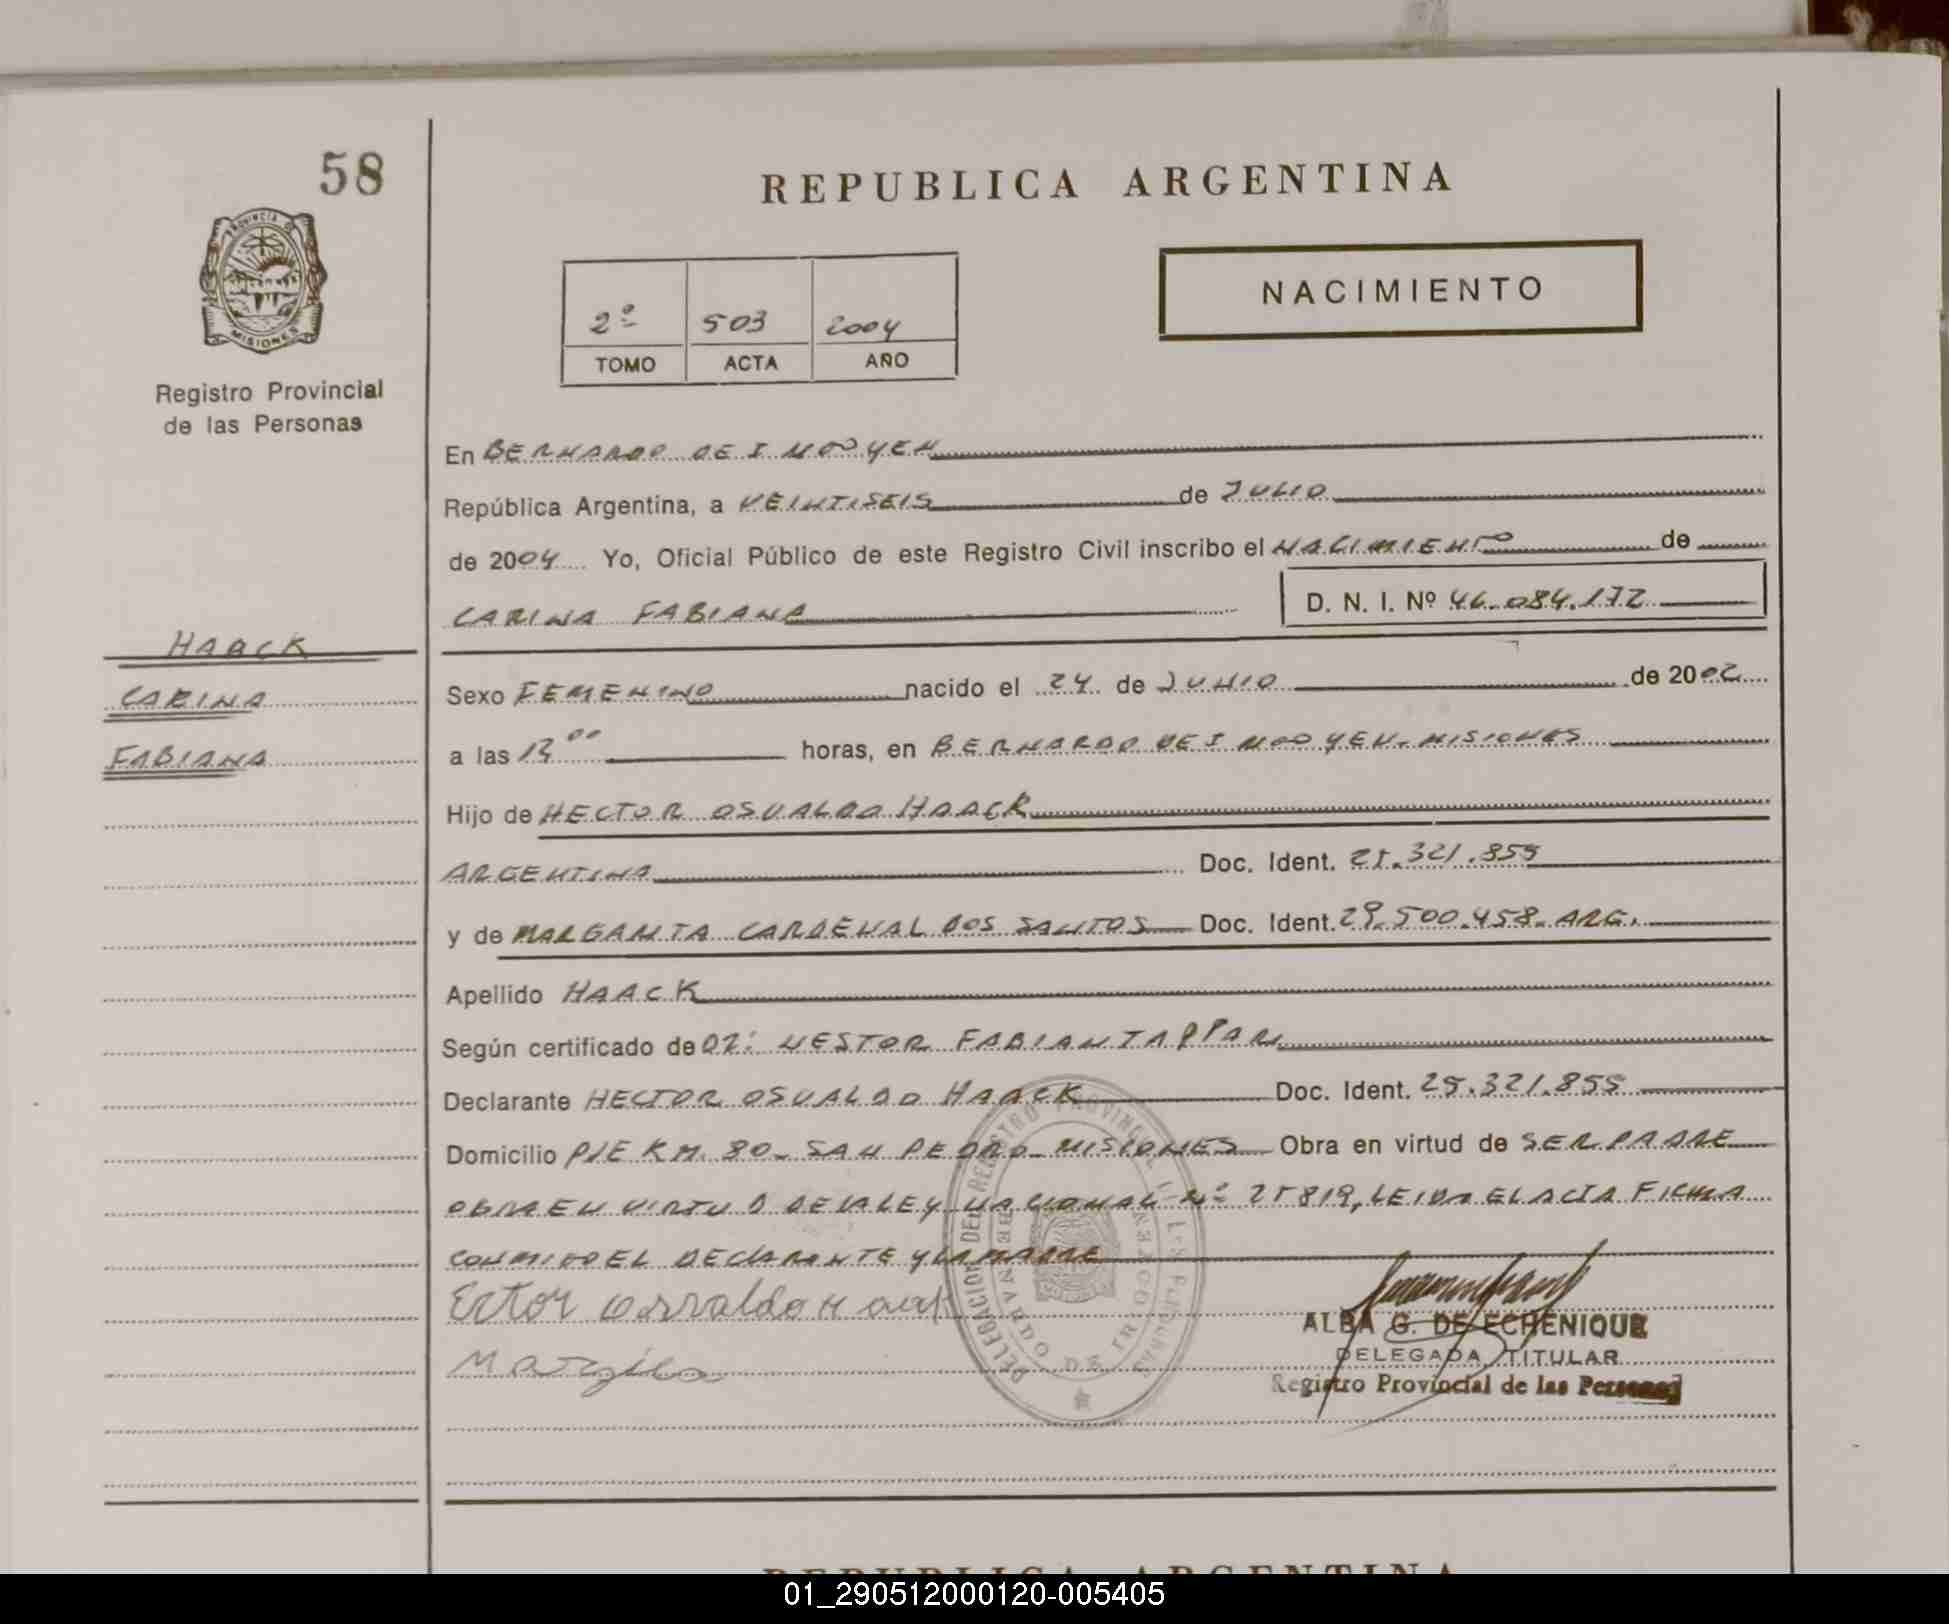 58
REPUBLICA ARGENTINA
PROVINCIA DE
MISIONES
Registro Provincial
de las Personas
2º 503 2004
TOMO ACTA AÑO
NACIMIENTO
En BERNARDO DE IRIGOYEN
República Argentina, a VEINTISEIS de JULIO
de 2004 Yo, Oficial Público de este Registro Civil inscribo el NACIMIENTO de
CARINA FABIANA D. N. I. Nº 46.084.172
HAACK
CARINA
FABIANA
Sexo FEMENINO nacido el 24 de JUNIO de 2002
a las 13 00 horas, en BERNARDO DE IRIGOYEN - MISIONES
Hijo de HECTOR OSVALDO HAACK
ARGENTINA Doc. Ident. 25.321.855
y de MARGARITA CARDENAL DOS SANTOS Doc. Ident. 29.500.458 - ARG.
Apellido HAACK
Según certificado de NESTOR FABIAN TAPPARI
Declarante HECTOR OSVALDO HAACK Doc. Ident. 25.321.855
Domicilio PJE KM. 80 - SAN PEDRO - MISIONES Obra en virtud de SER PADRE
OBRA EN VIRTUD DE LA LEY NACIONAL Nº 25819, LEIDA EL ACTA FIRMA
CONMIGO EL DECLARANTE Y LA MADRE
Ector osvaldo Haak
DELEGACION DEL REGISTRO PROVINCIAL DE LAS PERSONAS
BERNARDO DE IRIGOYEN
ALBA G. DE ECHENIQUE
DELEGADA TITULAR
Registro Provincial de las Personas
REPUBLICA ARGENTINA
01_290512000120-005405